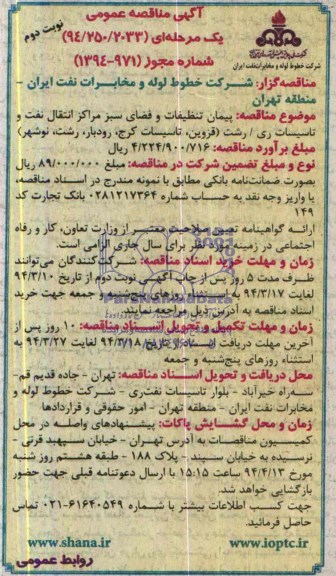 آگهی مناقصه عمومی
یک مرحله‌ای (۹۴/۲۵۰/۲۰۳۳)
نوبت دوم
شماره مجوز (۹۷۱-۱۳۹۴)
شرکت خطوط لوله و مخابرات نفت ایران
مناقصه‌گزار: شرکت خطوط لوله و مخابرات نفت ایران -
منطقه تهران
موضوع مناقصه: پیمان تنظیفات و فضای سبز مراکز انتقال نفت و
تاسیسات ری / رشت (قزوین، تاسیسات کرج، رودبار، رشت، نوشهر)
مبلغ برآورد مناقصه: ۴/۲۲۴/۹۰۰/۷۱۶ ریال
نوع و مبلغ تضمین شرکت در مناقصه: مبلغ ۸۹/۰۰۰/۰۰۰ ریال
بصورت ضمانت‌نامه بانکی مطابق با نمونه مندرج در اسناد مناقصه،
یا واریز وجه نقد به حساب شماره ۰۲۸۱۲۱۷۳۶۴ بانک تجارت کد
۱۴۹
ارائه گواهینامه تعیین صلاحیت معتبر از وزارت تعاون، کار و رفاه
اجتماعی در زمینه مورد نظر برای سال جاری الزامی است.
زمان و مهلت خرید اسناد مناقصه: شرکت‌کنندگان می‌توانند
ظرف مدت ۵ روز پس از چاپ آگهی نوبت دوم از تاریخ ۹۴/۳/۱۰
لغایت ۹۴/۳/۱۷ به استثناء روزهای پنج‌شنبه و جمعه جهت خرید
اسناد مناقصه به آدرس ذیل مراجعه نمایند.
زمان و مهلت تکمیل و تحویل اسناد مناقصه: ۱۰ روز پس از
آخرین مهلت دریافت اسناد از تاریخ ۹۴/۳/۱۸ لغایت ۹۴/۳/۲۷ به
استثناء روزهای پنج‌شنبه و جمعه
محل دریافت و تحویل اسناد مناقصه: تهران - جاده قدیم قم-
سه‌راه خیرآباد - بلوار تاسیسات نفت‌ری - شرکت خطوط لوله و
مخابرات نفت ایران - منطقه تهران - امور حقوقی و قراردادها
زمان و محل گشایش پاکات: پیشنهادهای واصله در محل
کمیسیون مناقصات به آدرس تهران - خیابان سپهبد قرنی -
نرسیده به خیابان سپند - پلاک ۱۸۸ - طبقه هشتم روز شنبه
مورخ ۹۴/۴/۱۳ ساعت ۱۵:۱۵ با ارسال دعوتنامه قبلی جهت حضور
بازگشایی خواهد شد.
جهت کسب اطلاعات بیشتر با شماره ۶۱۶۴۰۵۴۹-۰۲۱ تماس
حاصل فرمائید.
www.shana.ir www.ioptc.ir
روابط عمومی